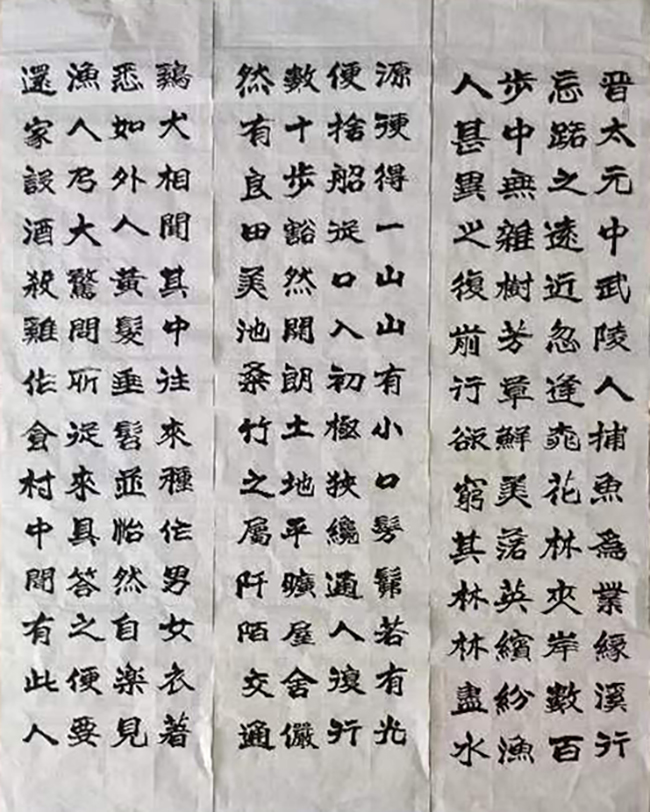 晋太元中武陵人捕魚為業緣溪行
忘路之遠近忽逢桃花林夾岸數百
步中無雜樹芳草鮮美落英繽紛漁
人甚異之復前行欲窮其林林盡水
源便得一山山有小口髣髴若有光
便捨船從口入初極狹纔通人復行
數十步豁然開朗土地平曠屋舍儼
然有良田美池桑竹之屬阡陌交通
鷄犬相聞其中往來種作男女衣著
悉如外人黃髮垂髫並怡然自楽見
漁人乃大驚問所從來具答之便要
還家設酒殺雞作食村中聞有此人